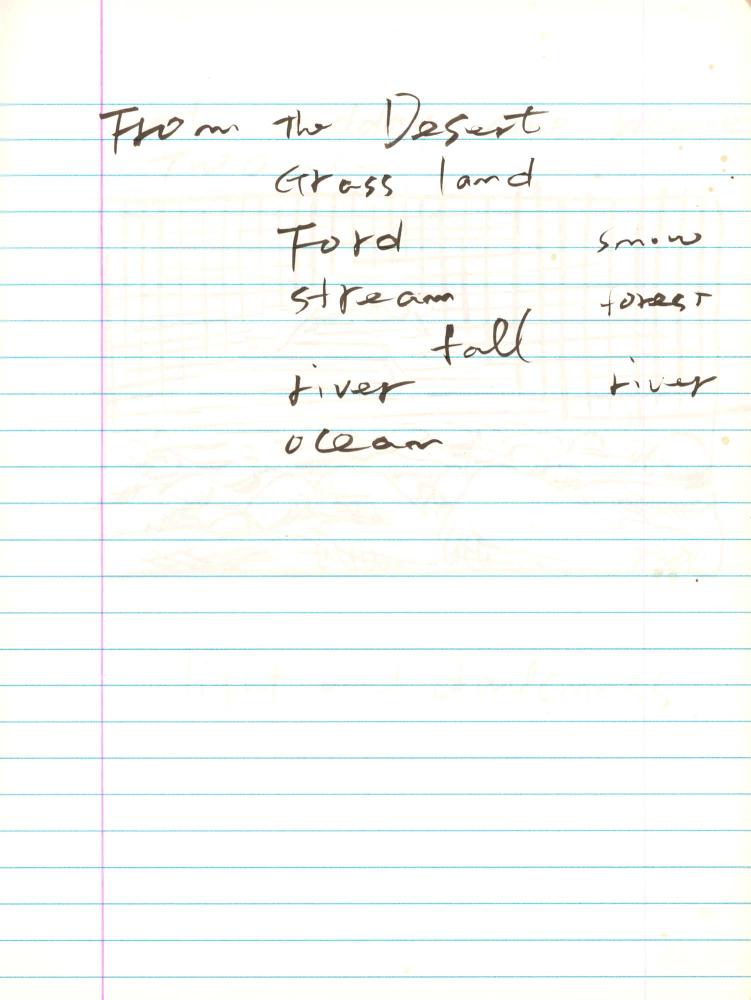 From the Desert
Grass land
Ford snow
stream forest
fall
river river
ocean